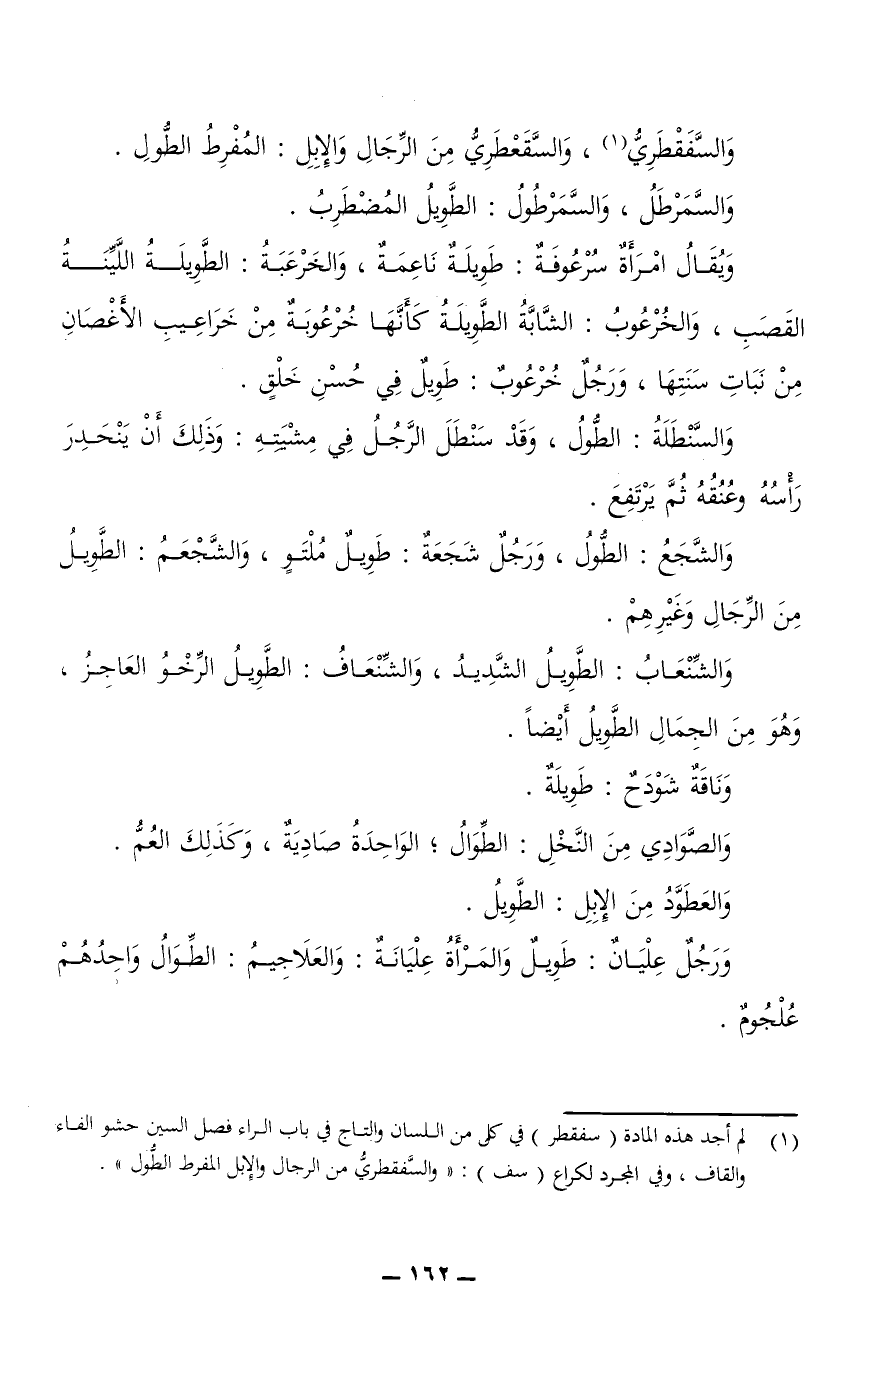 وَالسَّفَقْطَرِيُّ(١) ، وَالسَّقَعْطَرِيُّ مِنَ الرِّجَالِ وَالإِبِلِ : المُفْرِطُ الطُّولِ .
وَالسَّمَرْطَلُ ، وَالسَّمَرْطُولُ : الطَّوِيلُ المُضْطَرِبُ .
وَيُقَالُ امْرَأَةٌ سُرْعُوفَةٌ : طَوِيلَةٌ نَاعِمَةٌ ، وَالخَرْعَبَةُ : الطَّوِيلَةُ اللَّيِّنَةُ
القَصَبِ ، وَالخُرْعُوبُ : الشَّابَّةُ الطَّوِيلَةُ كَأَنَّهَا خُرْعُوبَةٌ مِنْ خَرَاعِيبِ الأَغْصَانِ
مِنْ نَبَاتِ سَنَتِهَا ، وَرَجُلٌ خُرْعُوبٌ : طَوِيلٌ فِي حُسْنِ خَلْقٍ .
وَالسَّنْطَلَةُ : الطُّولُ ، وَقَدْ سَنْطَلَ الرَّجُلُ فِي مِشْيَتِهِ : وَذَلِكَ أَنْ يَنْحَدِرَ
رَأْسُهُ وعُنُقُهُ ثُمَّ يَرْتَفِعَ .
وَالشَّجَعُ : الطُّولُ ، وَرَجُلٌ شَجَعَةٌ : طَوِيلٌ مُلْتَوٍ ، وَالشَّجْعَمُ : الطَّوِيلُ
مِنَ الرِّجَالِ وَغَيْرِهِمْ .
وَالشِّنْعَابُ : الطَّوِيلُ الشَّدِيدُ ، وَالشِّنْعَافُ : الطَّوِيلُ الرِّخْوُ العَاجِزُ ،
وَهُوَ مِنَ الجِمَالِ الطَّوِيلُ أَيْضاً .
وَنَاقَةٌ شَوْدَحٌ : طَوِيلَةٌ .
وَالصَّوَادِي مِنَ النَّخْلِ : الطِّوَالُ ؛ الوَاحِدَةُ صَادِيَةٌ ، وَكَذَلِكَ العُمُّ .
وَالعَطَوَّدُ مِنَ الإِبِلِ : الطَّوِيلُ .
وَرَجُلٌ عِلْيَانٌ : طَوِيلٌ وَالمَرْأَةُ عِلْيَانَةٌ : وَالعَلَاجِيمُ : الطِّوَالُ وَاحِدُهُمْ
عُلْجُومٌ .
(١) لم أجد هذه المادة ( سفقطر ) في كل من اللسان والتاج في باب الراء فصل السين حشو الفاء
والقاف ، وفي المجرد لكراع ( سف ) : « والسَّفقطريُّ من الرجال والإبل المفرط الطُّول » .
– ١٦٢ –